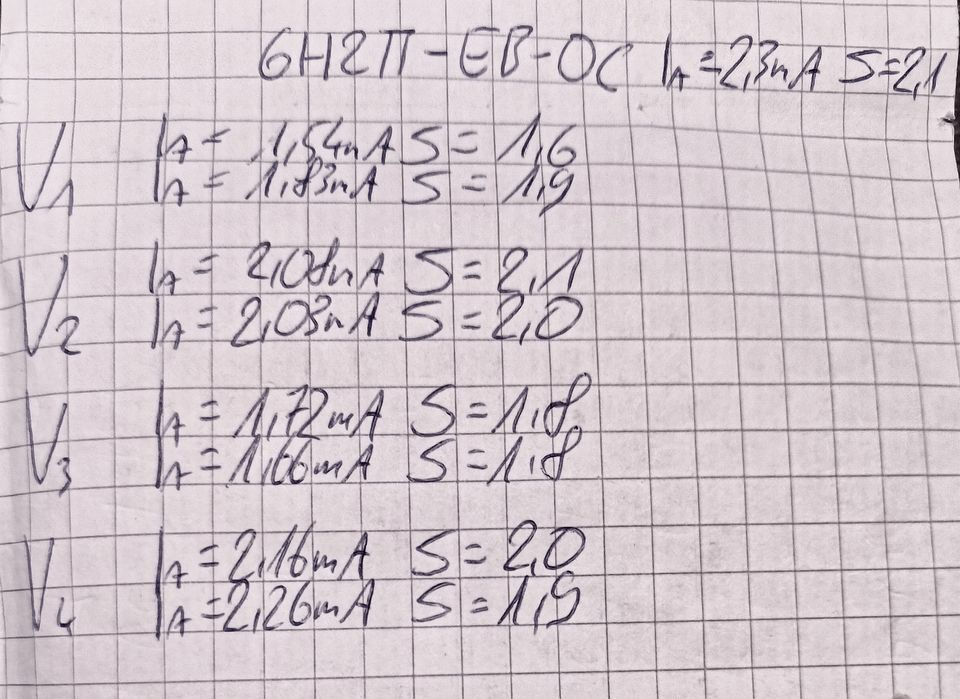 6Н2П-ЕВ-ОС IA=2,3mA S=2,1
V1 IA= 1,54mA S= 1,6
IA= 1,83mA S= 1,9
V2 IA= 2,08mA S=2,1
IA= 2,03mA S=2,0
V3 IA= 1,72mA S=1,8
IA= 1,66mA S=1,8
V4 IA=2,16mA S=2,0
IA=2,26mA S=1,9